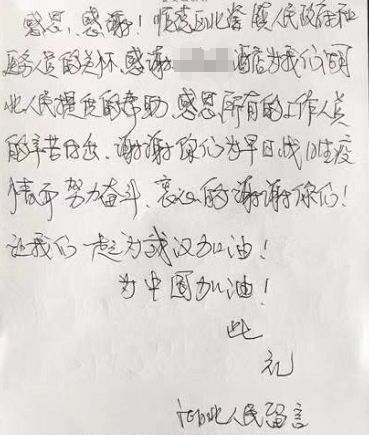 感恩，感谢！顺德区北滘镇人民政府和
医务人员的关怀，感谢酒店为我们湖
北人民提供的帮助，感恩所有的工作人员
的辛苦付出，谢谢你们为早日战胜疫
情而努力奋斗，衷心的谢谢你们！
让我们一起为武汉加油！
为中国加油！
此
礼
湖北人民留言